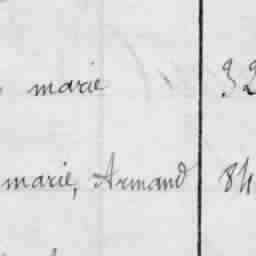 marie 32
marie, Armand 84